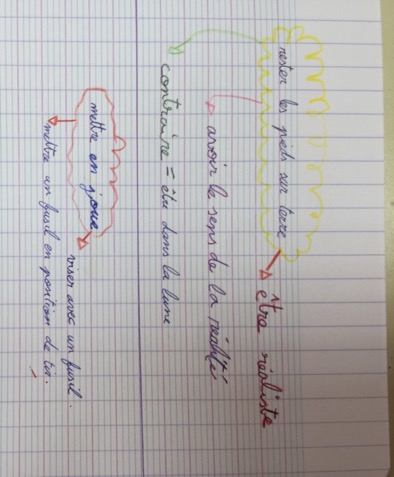 rester les pieds sur terre
être réaliste
avoir le sens de la réalité
contraire = être dans la lune
mettre en joue
viser avec un fusil.
mettre un fusil en position de tir.